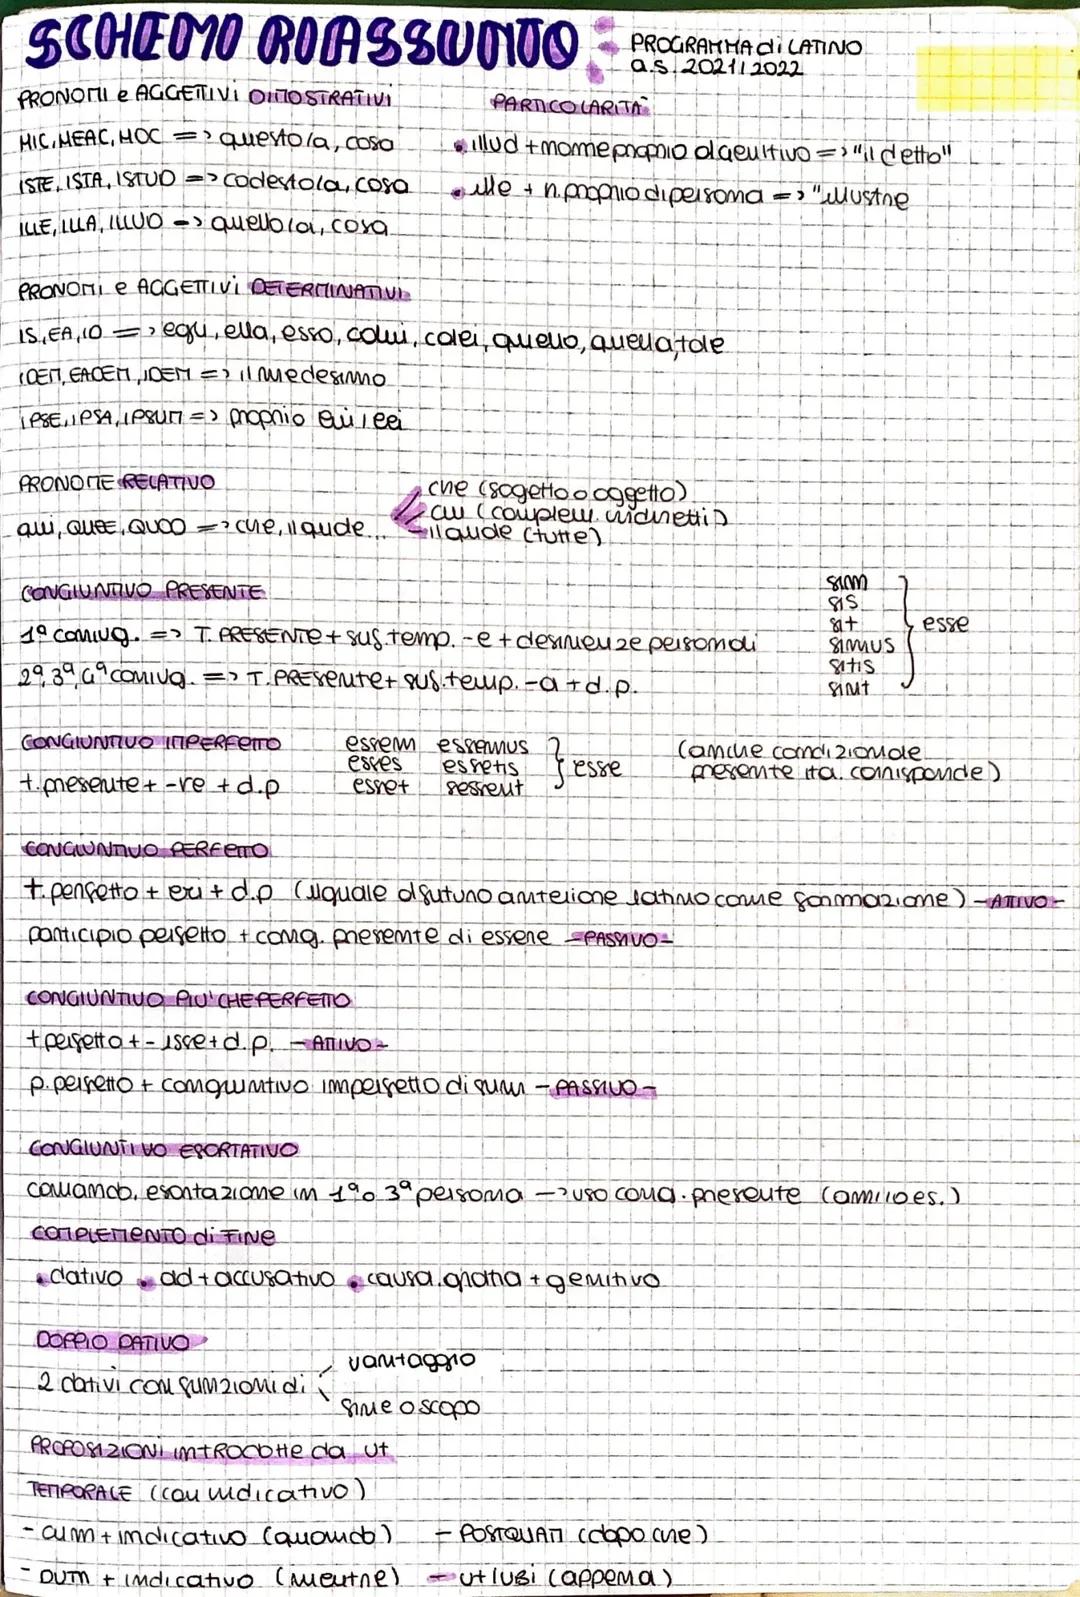 SCHEMO RIASSUNTO:
PROGRAMMA di LATINO
a.s. 2021/2022
PRONOMI e AGGETTIVI DIMOSTRATIVI
PARTICOLARITÀ
HIC, HEAC, HOC => questo/a, cosa
• illud + nome proprio al genitivo => "il detto"
ISTE, ISTA, ISTUD => codesto/a, cosa
• ille + n. proprio di persona => "illustre
ILLE, ILLA, ILLUD -> quello/a, cosa
PRONOMI e AGGETTIVI DETERMINATIVI
IS, EA, ID => egli, ella, esso, colui, colei, quello, quella, tale
IDEM, EADEM, IDEM => il medesimo
IPSE, IPSA, IPSUM => proprio lui, lei
PRONOME RELATIVO
qui, QUAE, QUOD => che, il quale...
che (sogetto o oggetto)
cui (complem. indiretti)
il quale (tutte)
CONGIUNTIVO PRESENTE
1ª coniug. => T. PRESENTE + suf. temp. -e + desinenze personali
2ª, 3ª, 4ª coniug. => T. PRESENTE + suf. temp. -a + d.p.
sim
sis
sit
simus
sitis
sint
esse
CONGIUNTIVO IMPERFETTO
t. presente + -re + d.p
essem essemus
esses essetis
esset essent
esse
(anche condizionale
presente ita. corrisponde)
CONGIUNTIVO PERFETTO
t. perfetto + eri + d.p (uguale al futuro anteriore latino come formazione) - ATTIVO -
participio perfetto + cong. presente di essere - PASSIVO -
CONGIUNTIVO PIU' CHEPERFETTO
t perfetto + - isse + d.p. - ATTIVO -
p. perfetto + congiuntivo imperfetto di sum - PASSIVO -
CONGIUNTIVO ESORTATIVO
comando, esortazione in 1ª o 3ª persona -> uso cong. presente
COMPLEMENTO di FINE
• dativo • ad + accusativo • causa, gratia + genitivo
DOPPIO DATIVO
2 dativi con funzioni di
vantaggio
fine o scopo
PROPOSIZIONI INTRODOTTE da ut
TEMPORALE (con indicativo)
- cum + indicativo (quando) - POSTQUAM (dopo che)
- DUM + indicativo (mentre) - ut/ubi (appena)